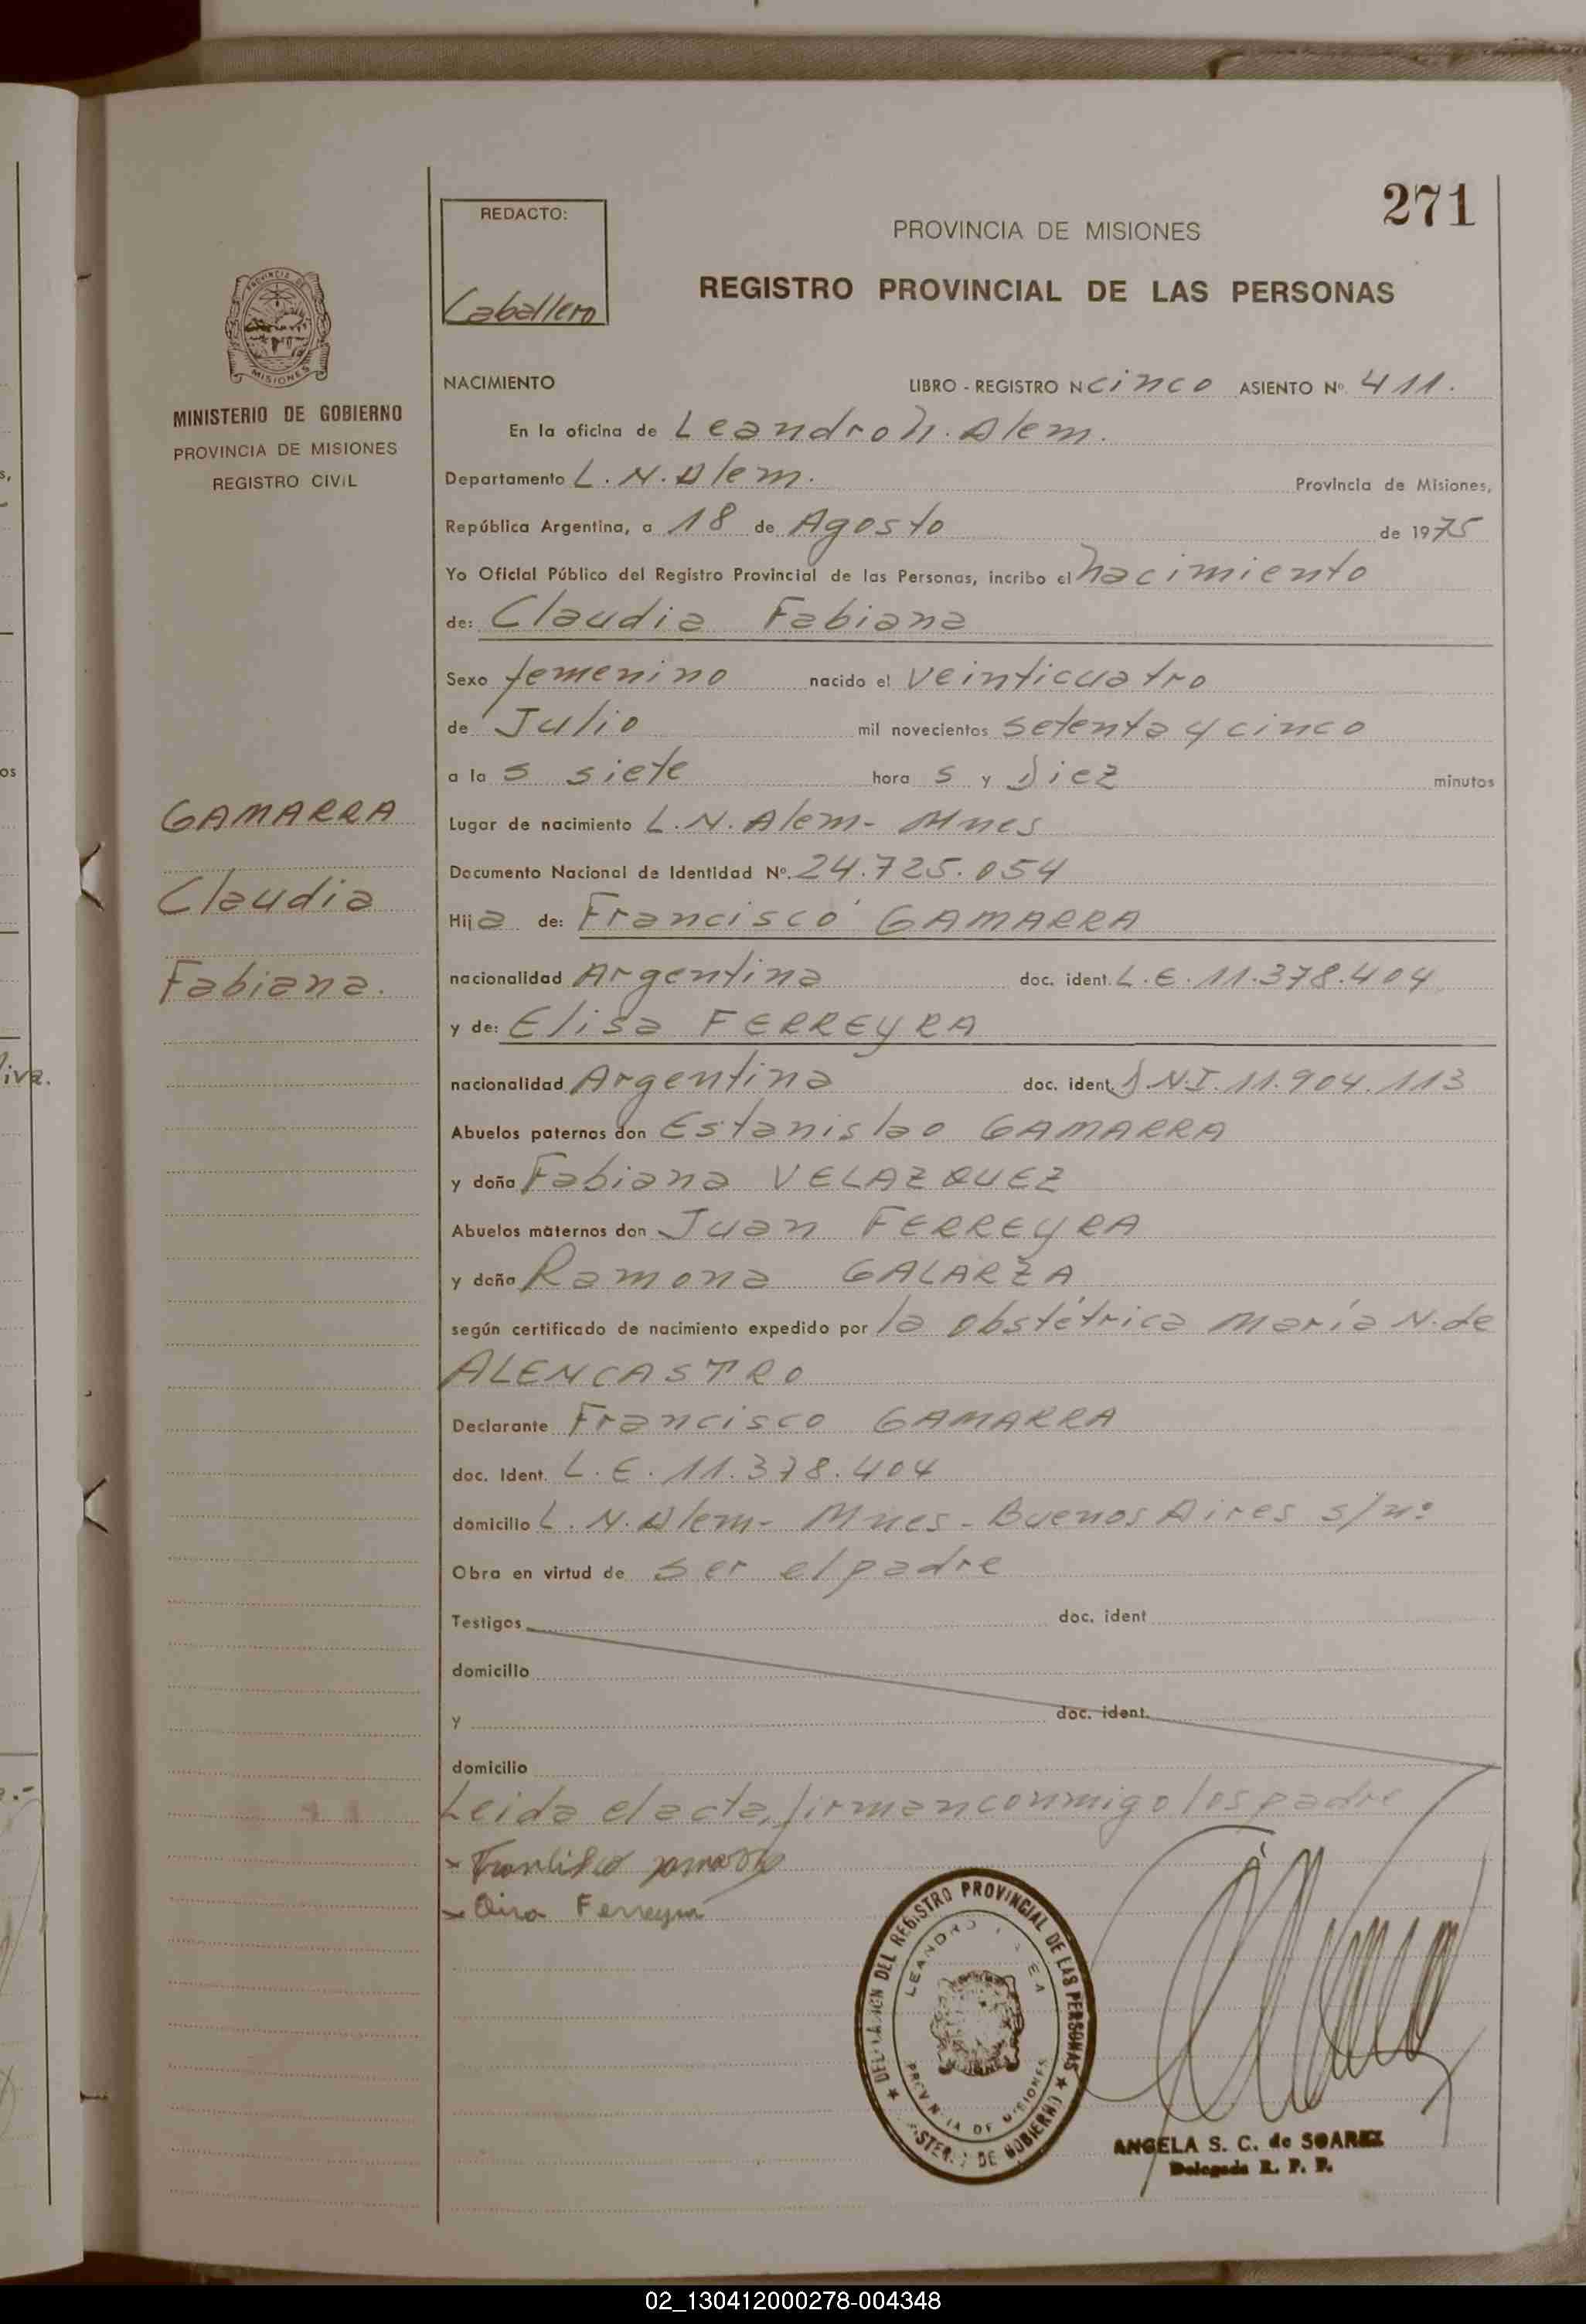 271
REDACTO:
Caballero
PROVINCIA DE MISIONES
REGISTRO PROVINCIAL DE LAS PERSONAS
MISIONES
MINISTERIO DE GOBIERNO
PROVINCIA DE MISIONES
REGISTRO CIVIL
GAMARRA
Claudia
Fabiana.
NACIMIENTO LIBRO - REGISTRO N cinco ASIENTO Nº 411.
En la oficina de Leandro N. Alem.
Departamento L. N. Alem. Provincia de Misiones,
República Argentina, a 18 de Agosto de 1975
Yo Oficial Público del Registro Provincial de las Personas, incribo el nacimiento
de: Claudia Fabiana
Sexo femenino nacido el veinticuatro
de Julio mil novecientos setenta y cinco
a la s siete hora s y Diez minutos
Lugar de nacimiento L. N. Alem - Mnes
Documento Nacional de Identidad Nº. 24.725.054
Hij a de: Francisco GAMARRA
nacionalidad Argentina doc. ident. L. E. 11.378.404
y de: Elisa FERREYRA
nacionalidad Argentina doc. ident. D.N.I. 11.904.113
Abuelos paternos don Estanislao GAMARRA
y doña Fabiana VELAZQUEZ
Abuelos maternos don Juan FERREYRA
y doña Ramona GALARZA
según certificado de nacimiento expedido por la obstétrica María N. de
ALENCASTRO
Declarante Francisco GAMARRA
doc. Ident. L. E. 11.378.404
domicilio L. N. Alem - Mnes - Buenos Aires s/nº
Obra en virtud de ser el padre
Testigos doc. ident
domicilio
y doc. ident.
domicilio
Leida el acta, firman conmigo los padre
Ferreyra
REGISTRO PROVINCIAL DE LAS PERSONAS
LEANDRO
DE MISIONES
DE GOBIERNO
ANGELA S. C. de SOAREZ
Delegada R. P. P.
02_130412000278-004348